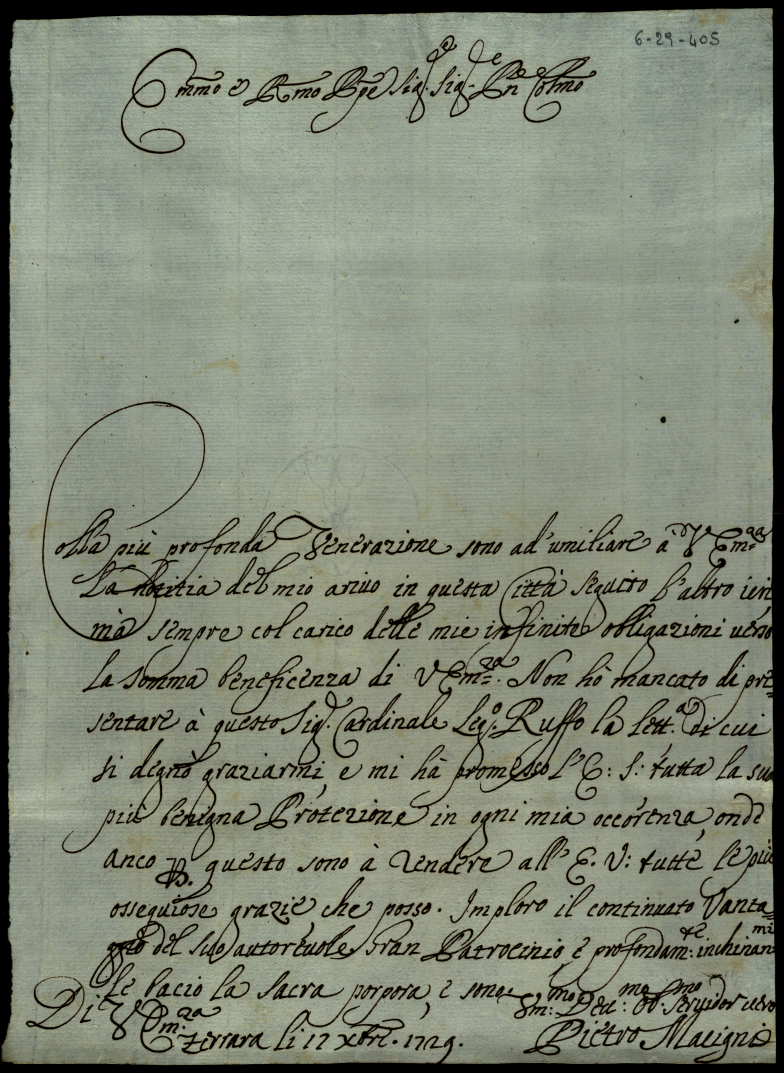 6-29-405
Emmo e Rmo Pñpe Sig.r Sig.re Pñ Colmo
Colla più profonda Venerazione sono ad'umiliare à V Em.za
La notitia del mio ariuo in questa Città seguito l'altro ieri
mà sempre col carico delle mie infinite obligazioni uerso
la somma beneficenza di V Em.za. Non hò mancato di pre=
sentare à questo Sig.r Cardinale Leg.o Ruffo la lett.a di cui
si degnò graziarmi, e mi hà promesso l'E: S: tutta la sua
più benigna Protezione in ogni mia occorenza, onde
anco p. questo sono à rendere all'E. V: tutte le più
ossequiose grazie che posso. Imploro il continuato Vanta=
gio del suo autoreuole Gran Patrocinio e profondam.te inchinan=
mi
le bacio la sacra porpora, e sono.
Di V Em.za Vm.mo Deu.mo Ob.mo Seruidor uero
Ferrara li 17 Xbre. 1729. Pietro Macigni